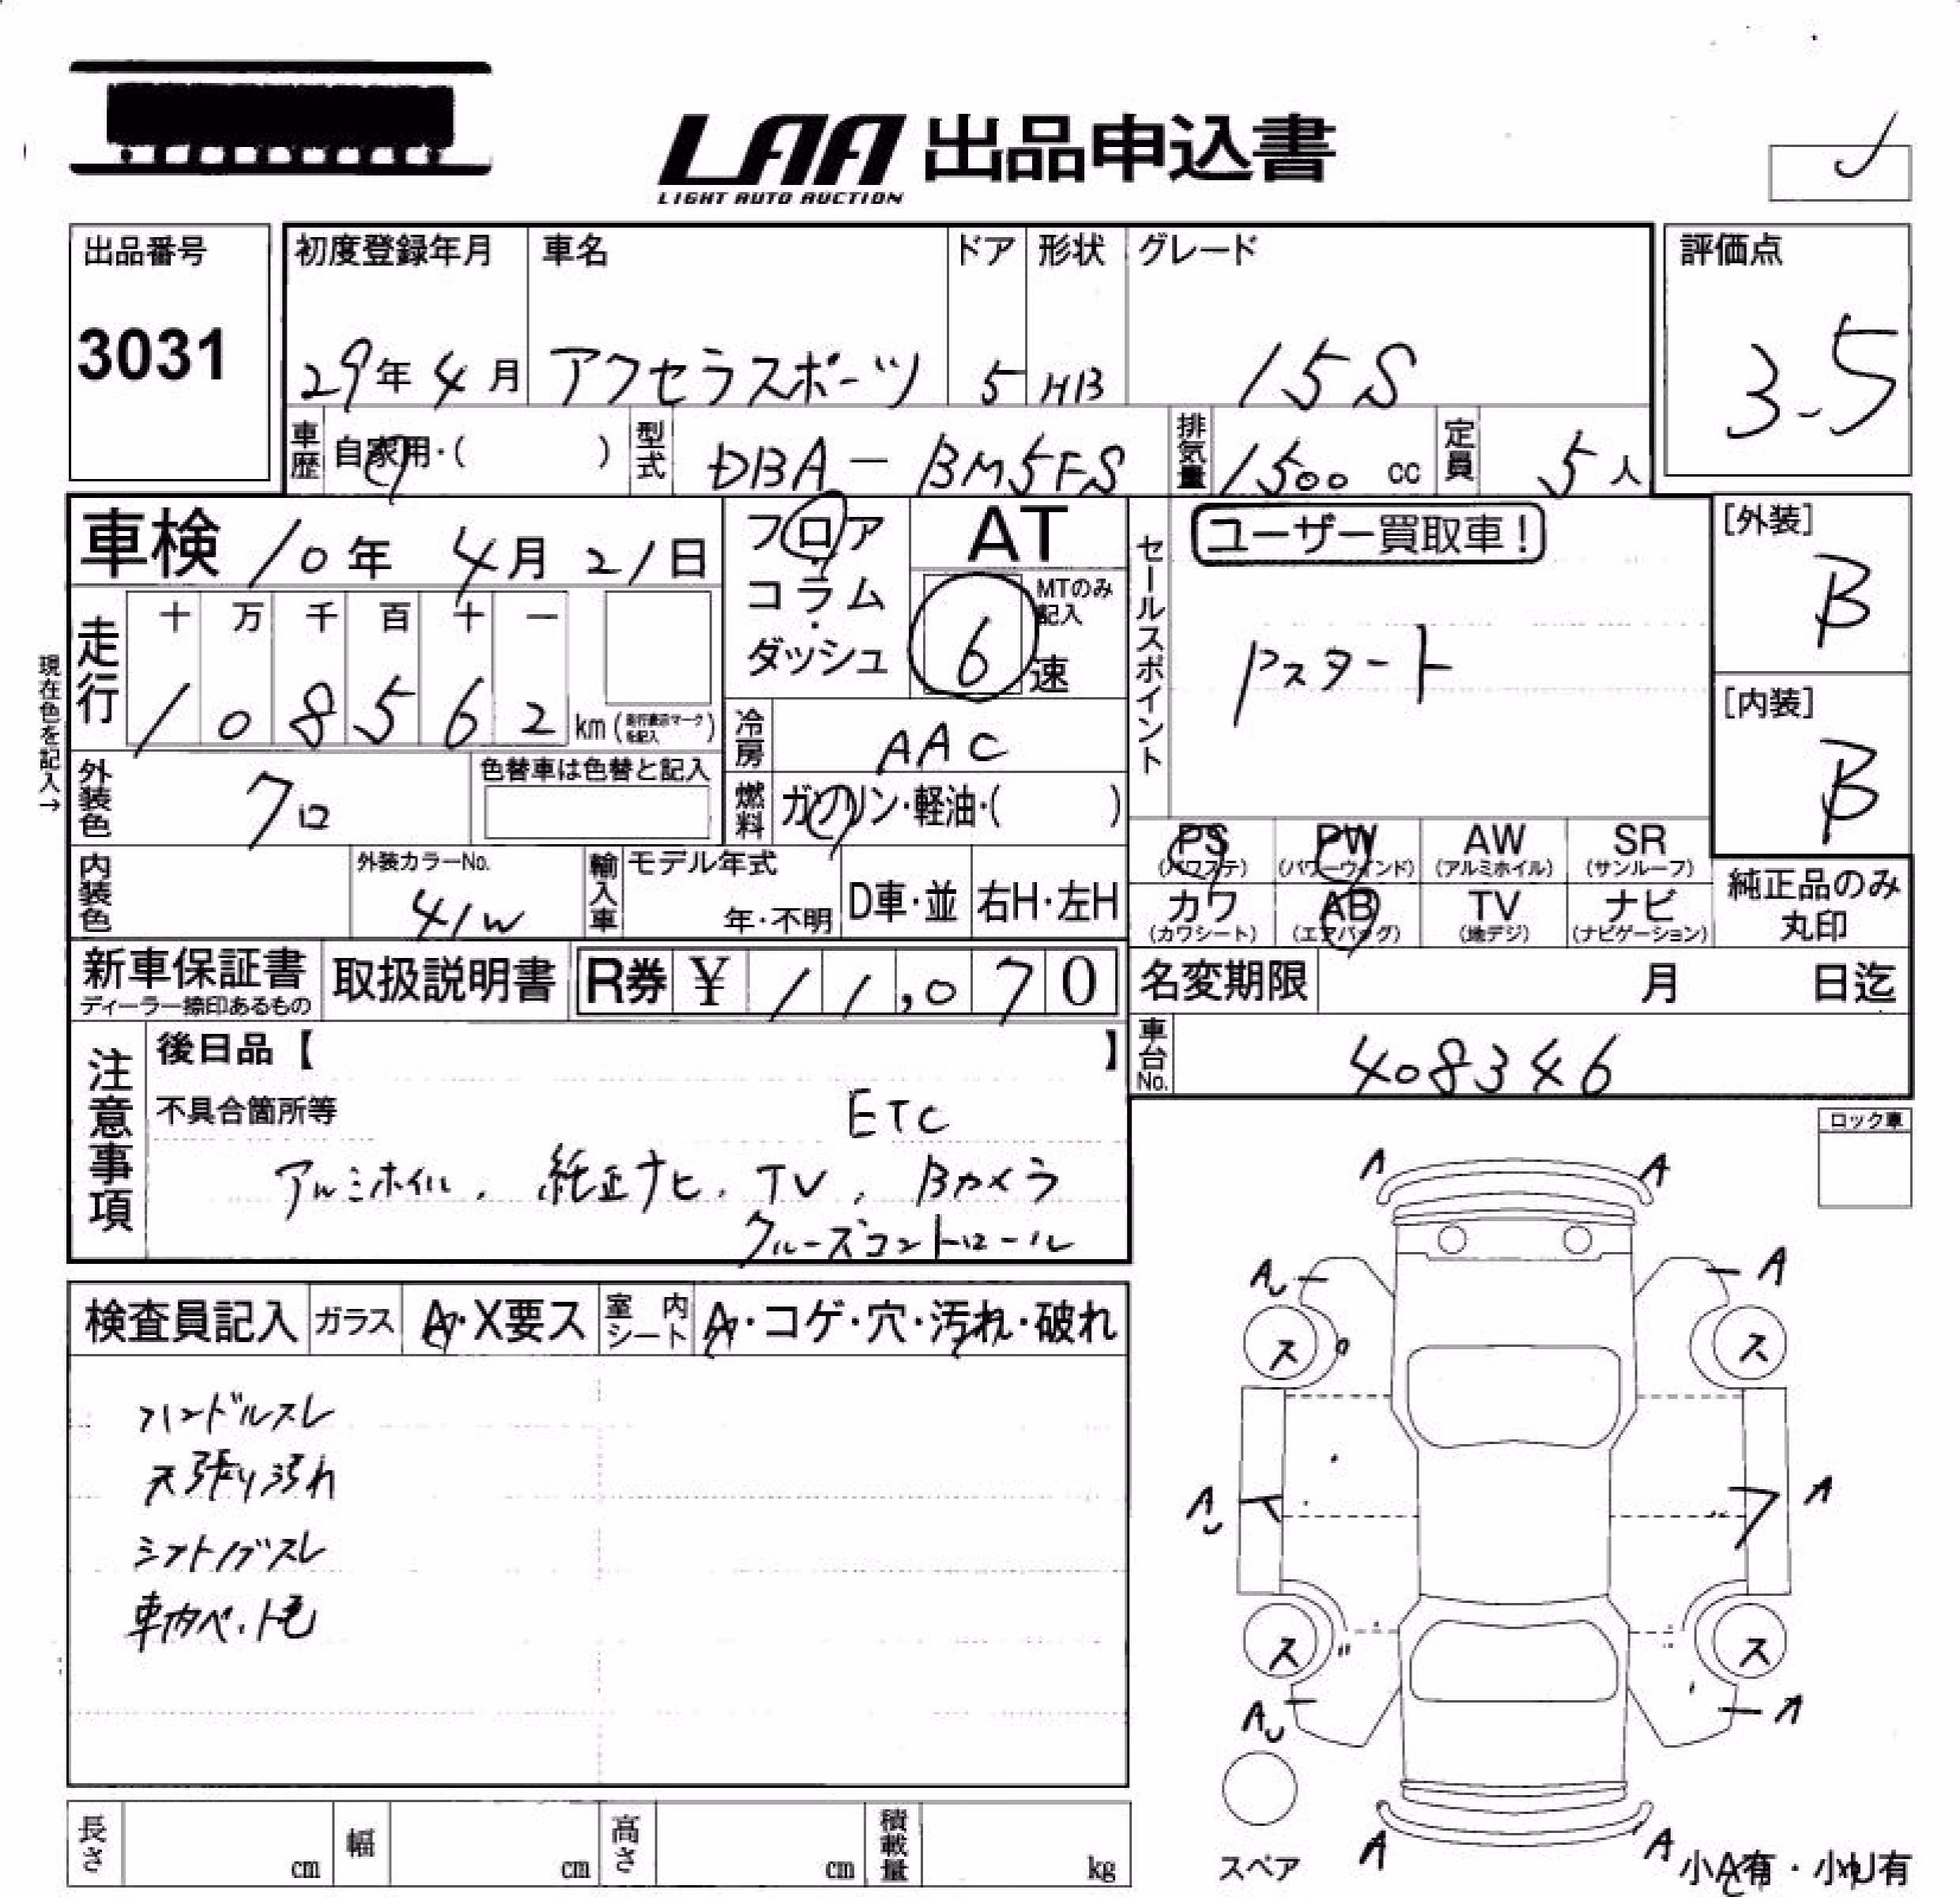 LAA 出品申込書
LIGHT AUTO AUCTION
出品番号
3031
初度登録年月
29年4月
車名
アクセラスポーツ
ドア
5
形状
HB
グレード
15S
評価点
3.5
車歴
自家用・( )
型式
DBA-BM5FS
排気量
1500 cc
定員
5人
車検 10年 4月 21日
フロア
コラム
ダッシュ
AT
MTのみ記入
6速
セールスポイント
ユーザー買取車!
Pスタート
[外装]
B
[内装]
B
現在色を記入→
走行
十 万 千 百 十 一
1 0 8 5 6 2 km (走行表示マークを記入)
冷房
AAC
外装色
クロ
色替車は色替と記入
燃料
ガソリン・軽油・( )
PS (パワステ)
PW (パワーウインド)
AW (アルミホイル)
SR (サンルーフ)
カワ (カワシート)
AB (エアバッグ)
TV (地デジ)
ナビ (ナビゲーション)
純正品のみ
丸印
内装色
外装カラーNo.
41W
輸入車
モデル年式
年・不明
D車・並
右H・左H
新車保証書
ディーラー捺印あるもの
取扱説明書
R券 ¥ 11,070
名変期限 月 日迄
車台No.
408346
注意事項
後日品【 】
不具合箇所等
ETC
アルミホイル, 純正ナビ, TV, Bカメラ
クルーズコントロール
ロック車
検査員記入
ガラス
A・X要ス
室内シート
A・コゲ・穴・汚れ・破れ
ハンドルスレ
天張り汚れ
シフトノブスレ
車内ペット毛
A A
A A
ス ス
A A
ス ス
A A
A A
スペア
小A有・小U有
長さ cm
幅 cm
高さ cm
積載量 kg